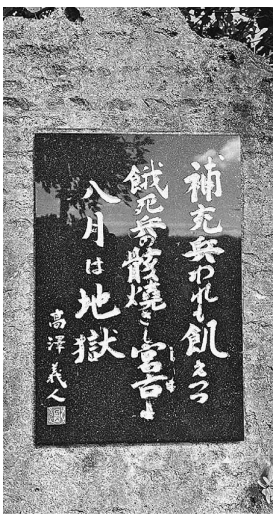 補充兵われも飢えつつ
餓死兵の骸燒きし宮古よ
八月は地獄
高澤義人